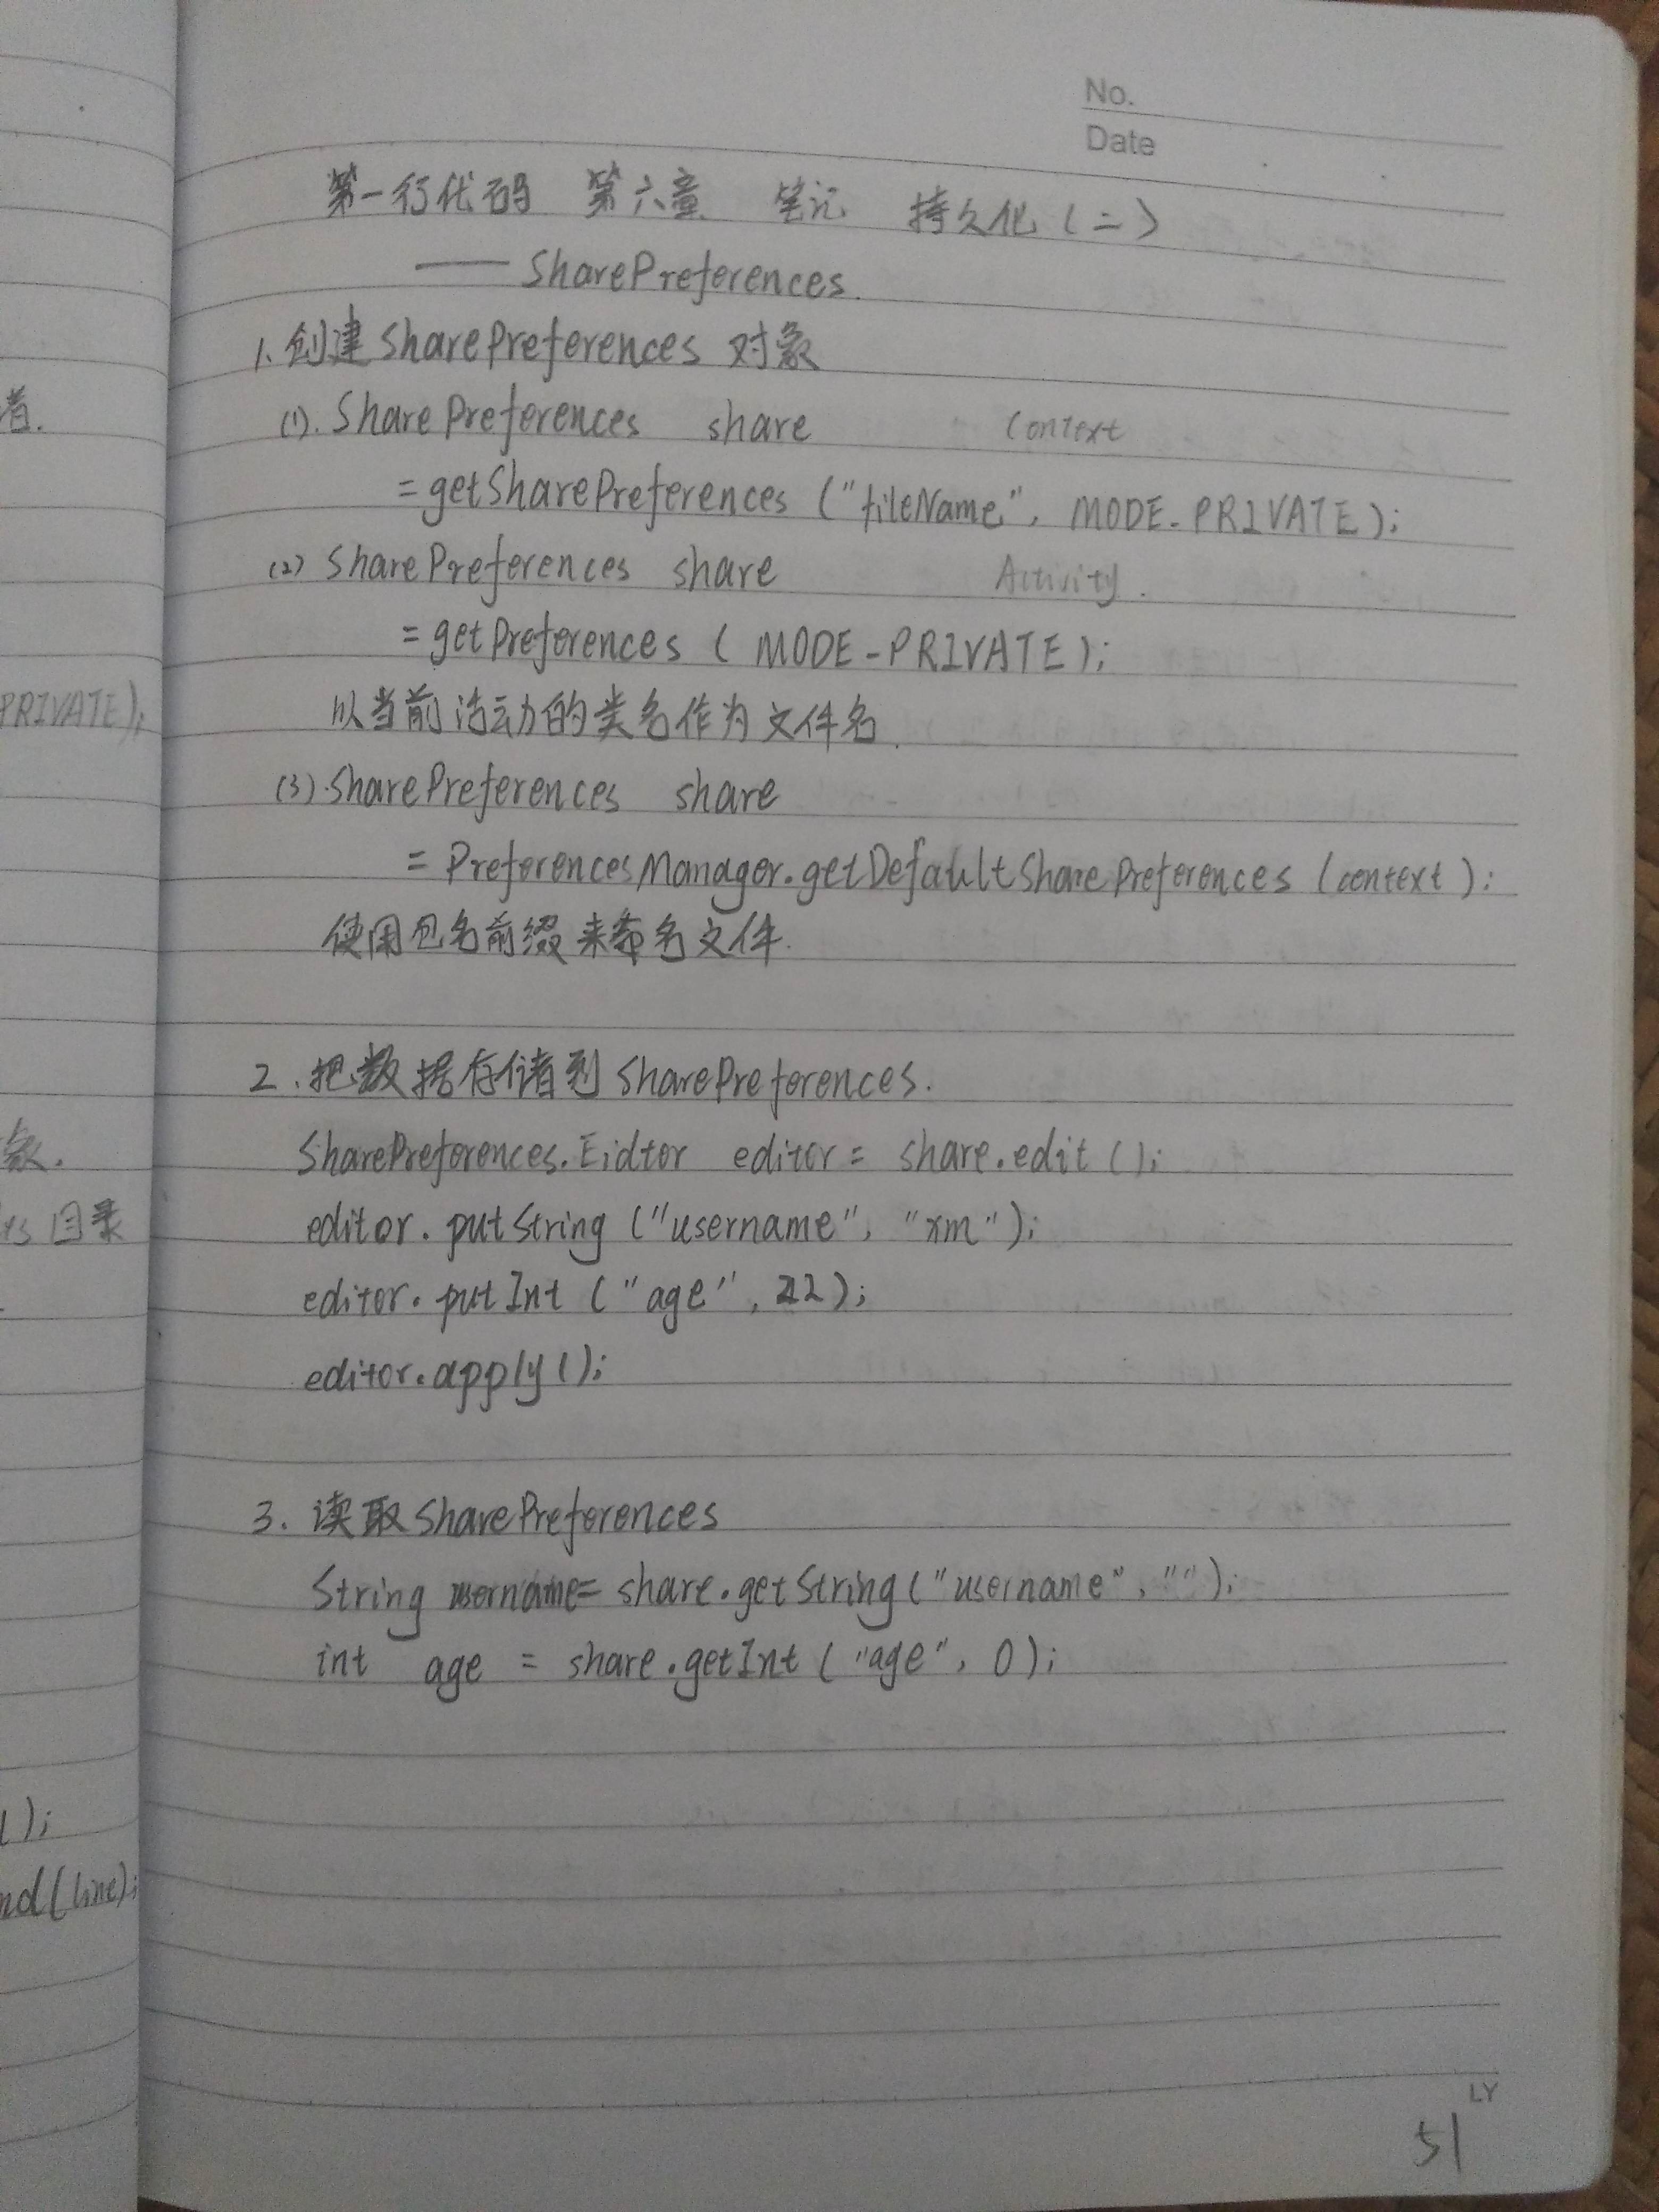 No.
Date
第一行代码 第六章 笔记 持久化(二)
—— SharePreferences.
1.创建SharePreferences 对象
(1).SharePreferences share Context
=getSharePreferences ("fileName", MODE_PRIVATE);
(2) SharePreferences share Activity.
=getPreferences ( MODE-PRIVATE);
以当前活动的类名作为文件名.
(3).SharePreferences share
= PreferencesManager.getDefaultSharePreferences (context);
使用包名前缀来命名文件.
2.把数据存储到SharePreferences.
SharePreferences.Eidtor editor = share.edit ();
editor.putString ("username", "xm");
editor.putInt ("age", 22);
editor.apply();
3. 读取SharePreferences
String username= share.getString("username", "");
int age = share.getInt ("age", 0);
LY
51
者.
PRIVATE);
象.
ts 目录
();
nd(line);